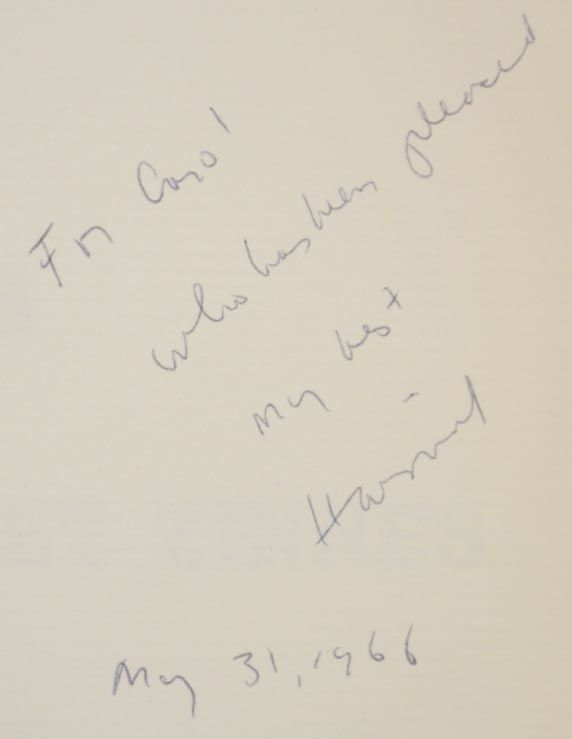 For Carol
who has been pleased
My best
May 31, 1966